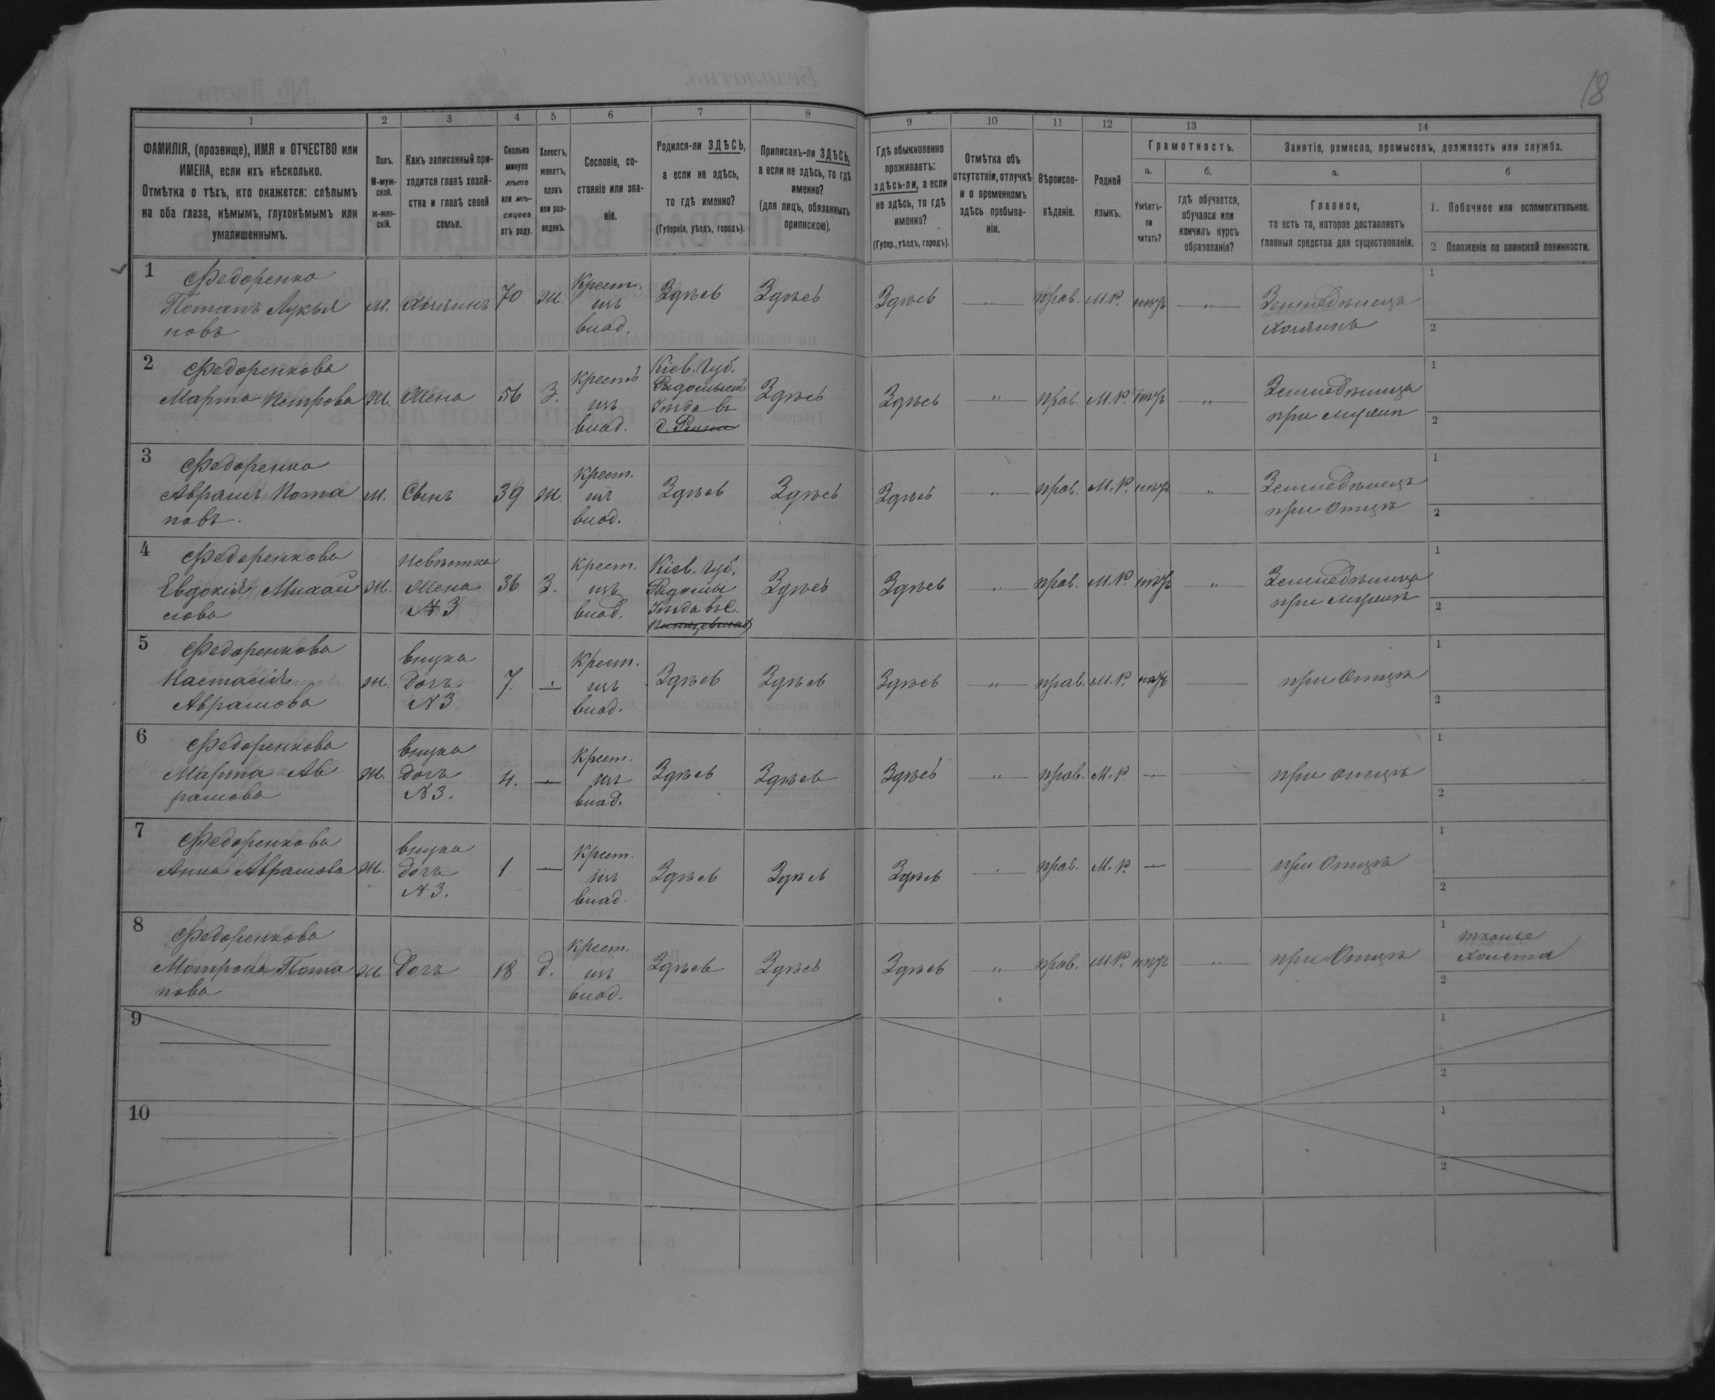 18
1 2 3 4 5 6 7 8 9 10 11 12 13 14
ФАМИЛІЯ, (прозвище), ИМЯ и ОТЧЕСТВО или
ИМЕНА, если ихъ нѣсколько.
Отмѣтка о тѣхъ, кто окажется: слѣпымъ
на оба глаза, нѣмымъ, глухонѣмымъ или
умалишеннымъ.
Полъ.
М-муж-
ской.
ж-жен-
скій.
Какъ записанный при-
ходится главѣ хозяй-
ства и главѣ своей
семьи.
Сколько
минуло
лѣтъ
или мѣ-
сяцевъ
отъ роду.
Холостъ,
женатъ,
вдовъ
или раз-
веденъ.
Сословіе, со-
стояніе или зва-
ніе.
Родился-ли ЗДѢСЬ,
а если не здѣсь,
то гдѣ именно?
(Губернія, уѣздъ, городъ).
Приписанъ-ли ЗДѢСЬ,
а если не здѣсь, то гдѣ
именно?
(для лицъ, обязанныхъ
припискою).
Гдѣ обыкновенно
проживаетъ:
здѣсь-ли, а если
не здѣсь, то гдѣ
именно?
(Губер., уѣздъ, городъ).
Отмѣтка объ
отсутствіи, отлучкѣ
и о временномъ
здѣсь пребыва-
ніи.
Вѣроиспо-
вѣданіе.
Родной
языкъ.
Грамотность.
а.
Умѣетъ-
ли
читать?
б.
гдѣ обучается,
обучался или
кончилъ курсъ
образованія?
Занятіе, ремесло, промыселъ, должность или служба.
а.
Главное,
то есть то, которое доставляетъ
главныя средства для существованія.
б
1. Побочное или вспомогательное.
2 Положеніе по воинской повинности.
1 Федоренко
Потапъ Лукья
новъ
м. хозяинъ 70 ж.
Крест.
изъ
влад.
Здѣсь Здѣсь Здѣсь — прав. М.Р. нѣтъ —
Земледѣлецъ
хозяинъ
1
2
2 Федоренкова
Марта Петрова
ж. Жена 56 З.
Крест.
изъ
влад.
Кіев. Губ.
Уѣзда въ
Здѣсь Здѣсь " прав. М.Р. нѣтъ "
Земледѣлица
при мужѣ
1
2
3 Федоренко
Аврамъ Пота
повъ
м. Сынъ 39 ж.
Крест.
изъ
влад.
Здѣсь Здѣсь Здѣсь " прав. М.Р. нѣтъ "
Земледѣлецъ
при Отцѣ
1
2
4 Федоренкова
Евдокія Михай
лова
ж.
Невѣстка
Жена
№3
36 З.
Крест.
изъ
влад.
Кіев. Губ.
Радомы
Уѣзда въ с.
Здѣсь Здѣсь " прав. М.Р. нѣтъ "
Земледѣлица
при мужѣ
1
2
5 Федоренкова
Настасія
Аврамова
ж.
внука
Дочь
№3
7. —
Крест.
изъ
влад.
Здѣсь Здѣсь Здѣсь " прав. М.Р. нѣтъ —
при Отцѣ
1
2
6 Федоренкова
Марта Ав
рамова
ж.
внука
Дочь
№3.
4. —
Крест.
изъ
влад.
Здѣсь Здѣсь Здѣсь " прав. М.Р. — —
при отцѣ
1
2
7 Федоренкова
Анна Аврамова
ж.
внука
Дочь
№3.
1 —
Крест.
изъ
влад.
Здѣсь Здѣсь Здѣсь прав. М.Р. — —
при Отцѣ
1
2
8 Федоренкова
Мотрона Пота
пова
ж. Дочь 18 д.
Крест.
изъ
влад.
Здѣсь Здѣсь Здѣсь " прав. М.Р. нѣтъ "
при Отцѣ
1 тканье
холста
2
9
1
2
10
1
2